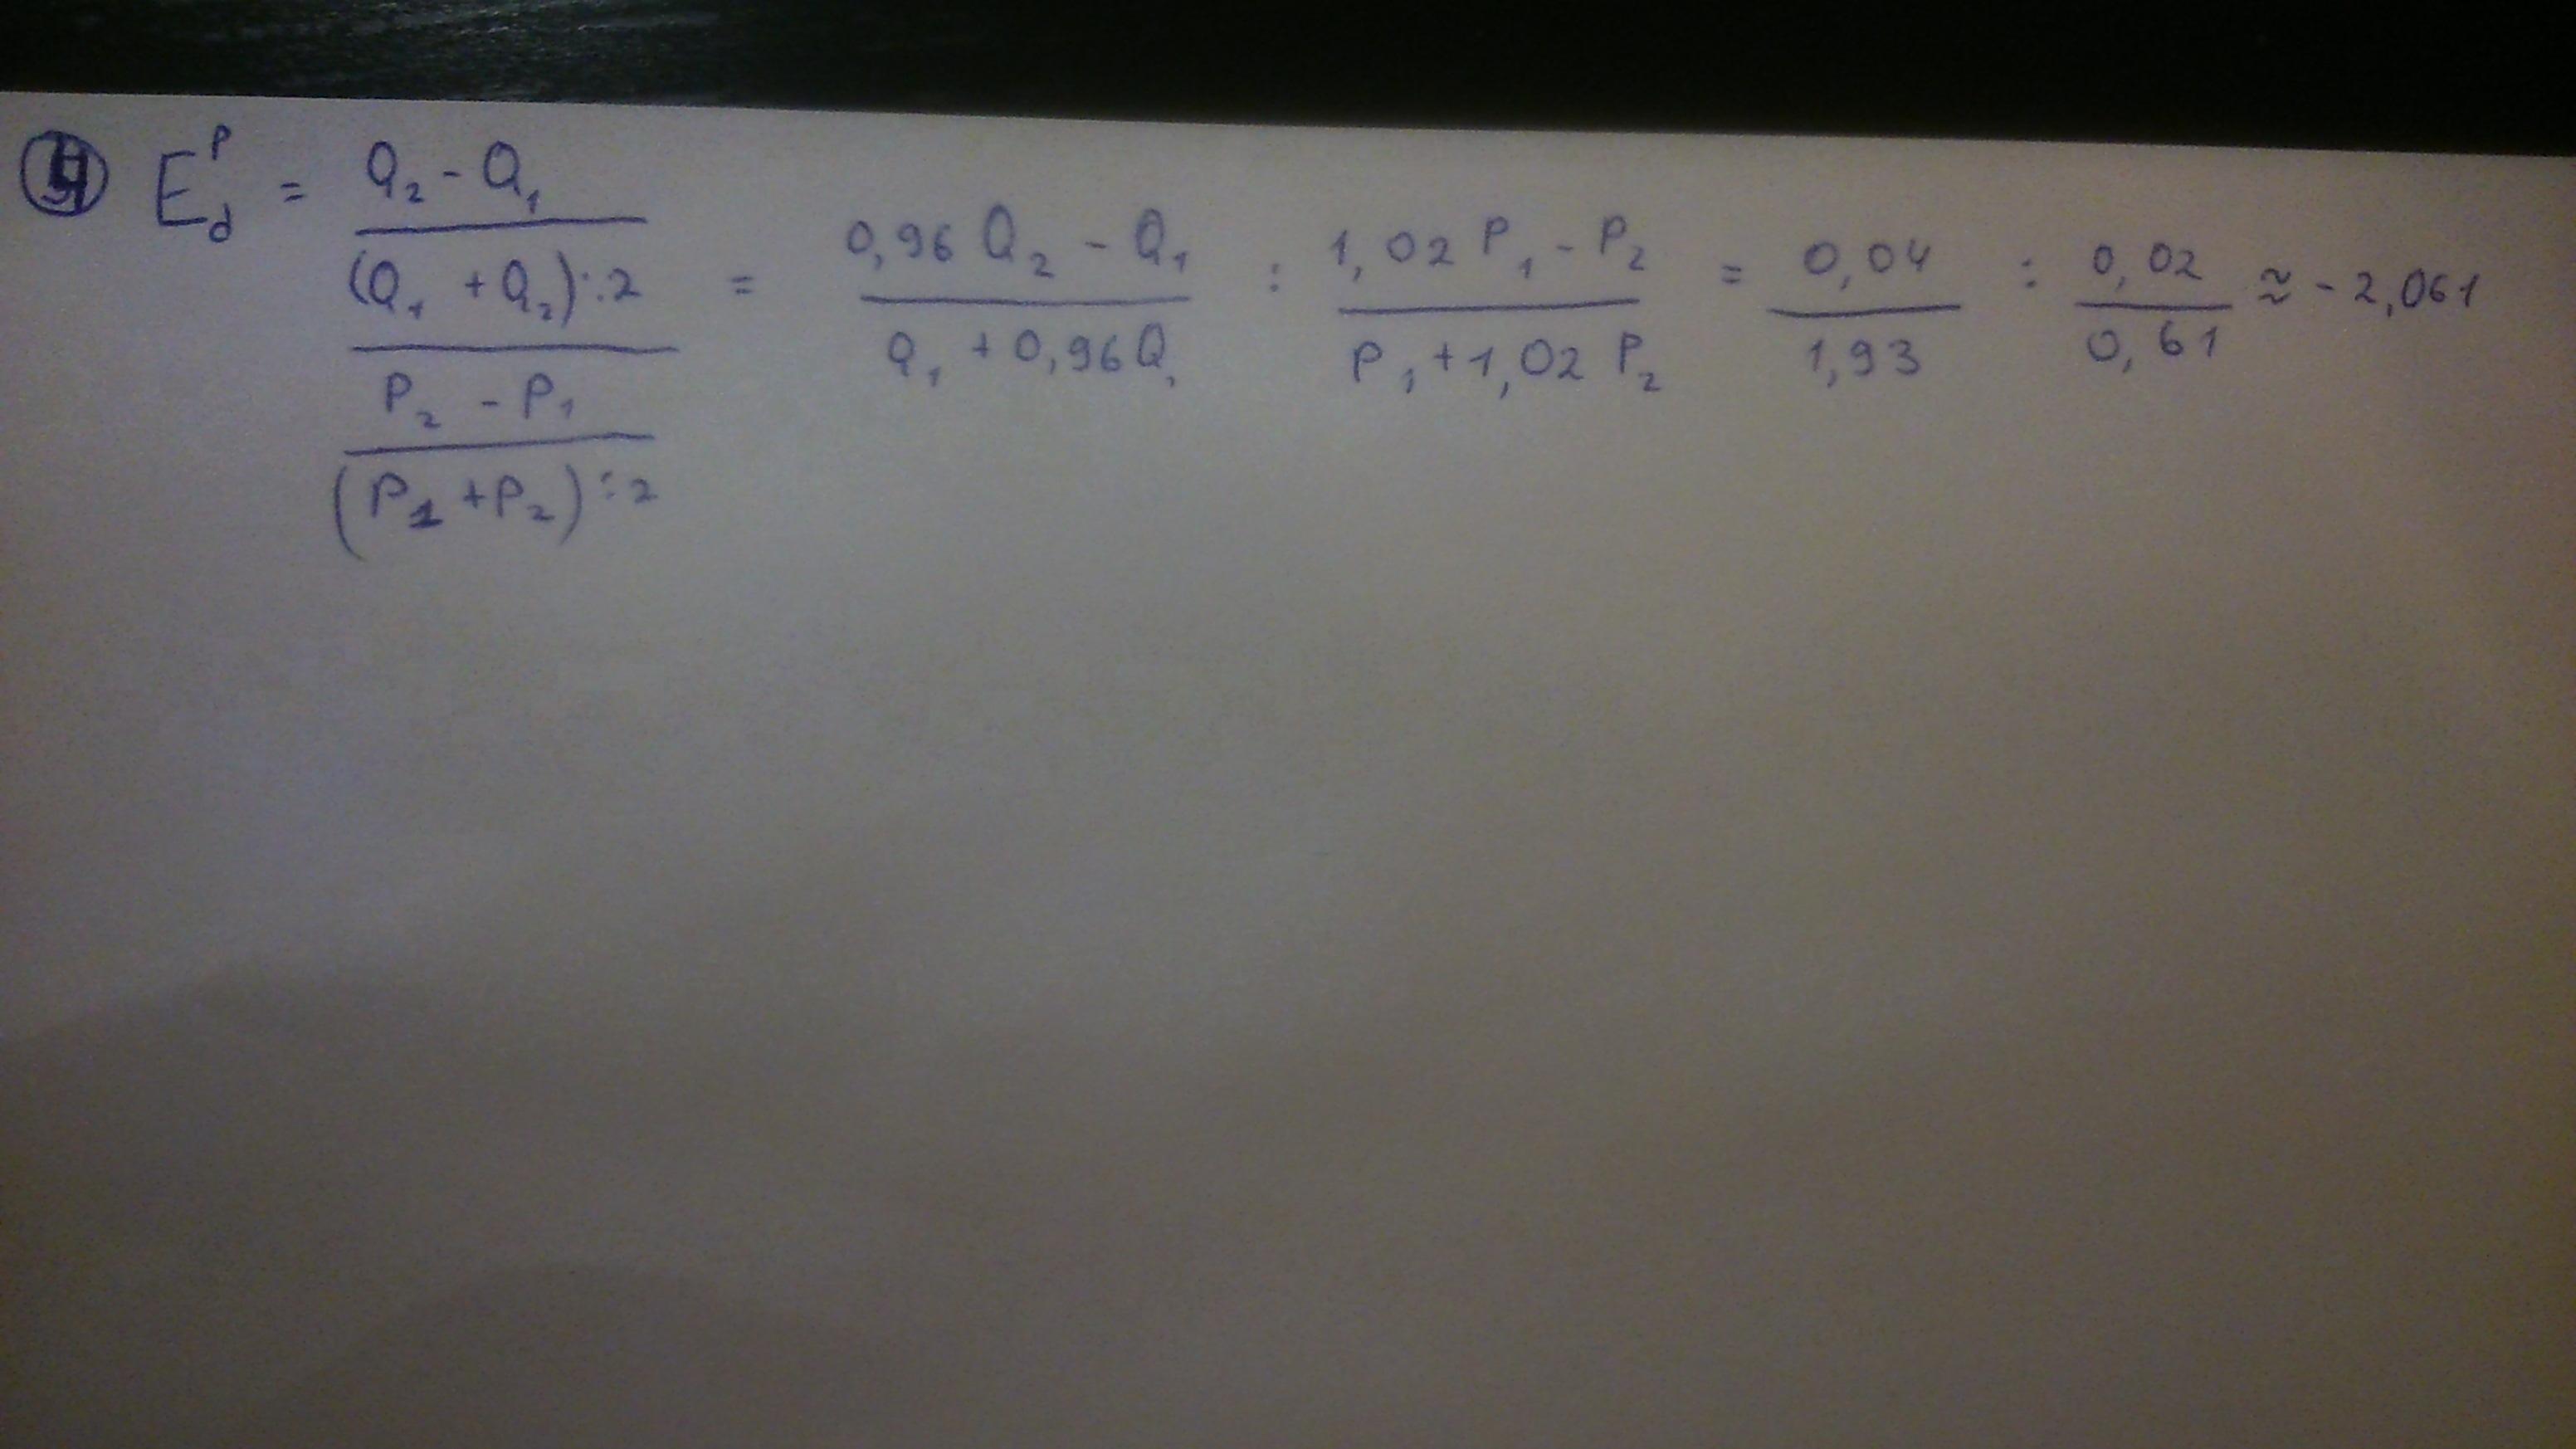 4 E_d^P = (Q₂ - Q₁) / ((Q₁ + Q₂):2) / (P₂ - P₁) / ((P₁ + P₂):2) = (0,96 Q₂ - Q₁) / (Q₁ + 0,96Q₁) : (1,02 P₁ - P₂) / (P₁ + 1,02 P₂) = 0,04 / 1,93 : 0,02 / 0,61 ≈ - 2,061